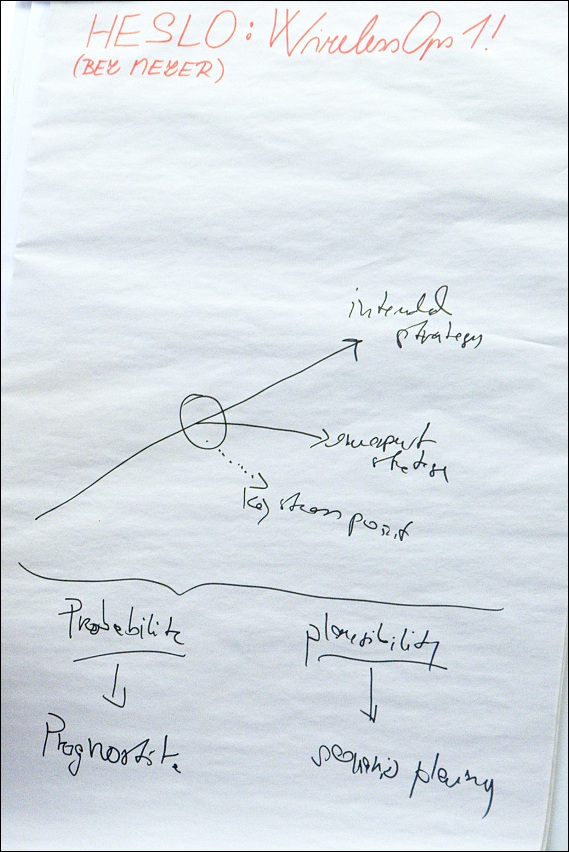 HESLO: WirelessOps1!
(BEZ MEZER)
intended
strategy
emergent
strategy
Key stress point
Probability
plausibility
Prognostik
scenario planning